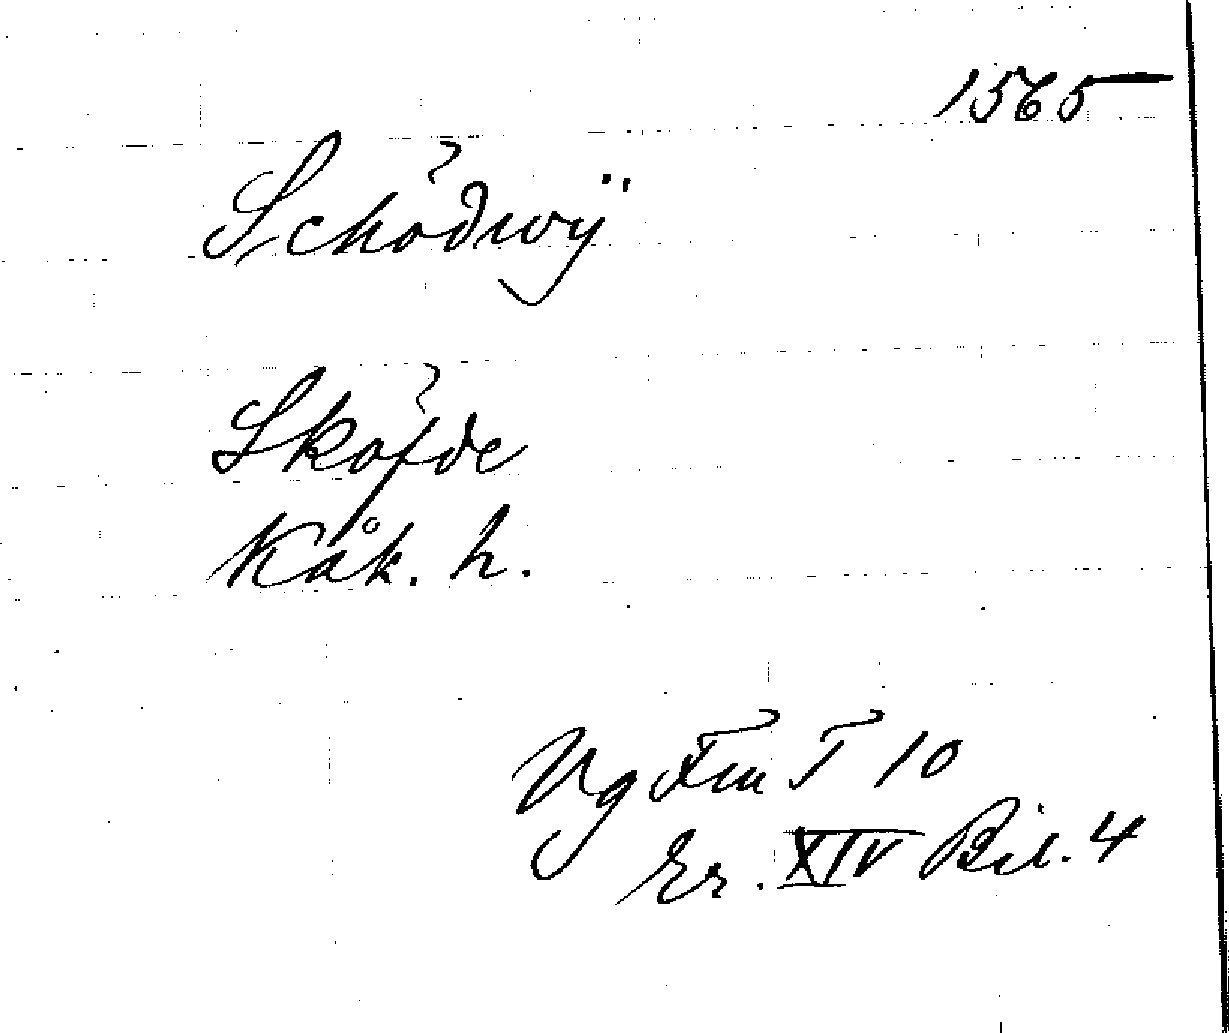 1565
Schödwÿ
Sköfde
Kåk. h.
Vg Fm T 10
Er. XIV Bil. 4